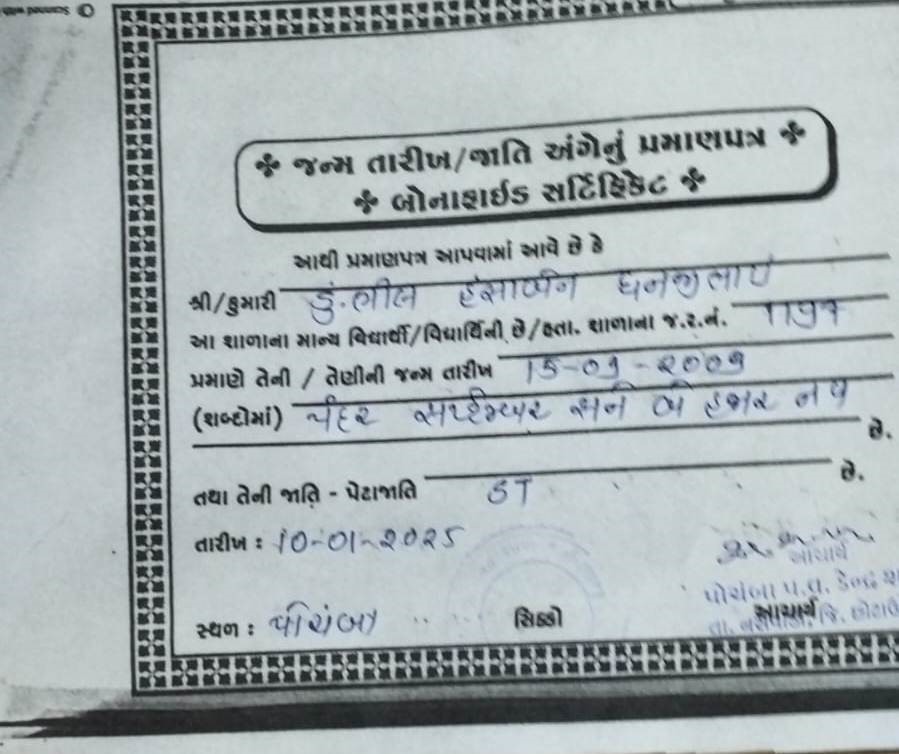 જન્મ તારીખ/જાતિ અંગેનું પ્રમાણપત્ર
બોનાફાઈડ સર્ટિફિકેટ
આથી પ્રમાણપત્ર આપવામાં આવે છે કે
શ્રી/કુમારી કુ.ભીલ હંસાબેન ધનજીભાઈ
આ શાળાના માન્ય વિદ્યાર્થી/વિદ્યાર્થિની છે/હતા. શાળાના જ.ર.નં.
પ્રમાણે તેની / તેણીની જન્મ તારીખ 15-09-2009
(શબ્દોમાં) પંદર સપ્ટેમ્બર સને બે હજાર નવ
છે.
તથા તેની જાતિ - પેટાજાતિ ST છે.
તારીખ : 10-01-2025
આચાર્ય
પોચંબા પ.વ. કેન્દ્ર
સ્થળ : પોચંબા સિક્કો આચાર્ય
Scanned with